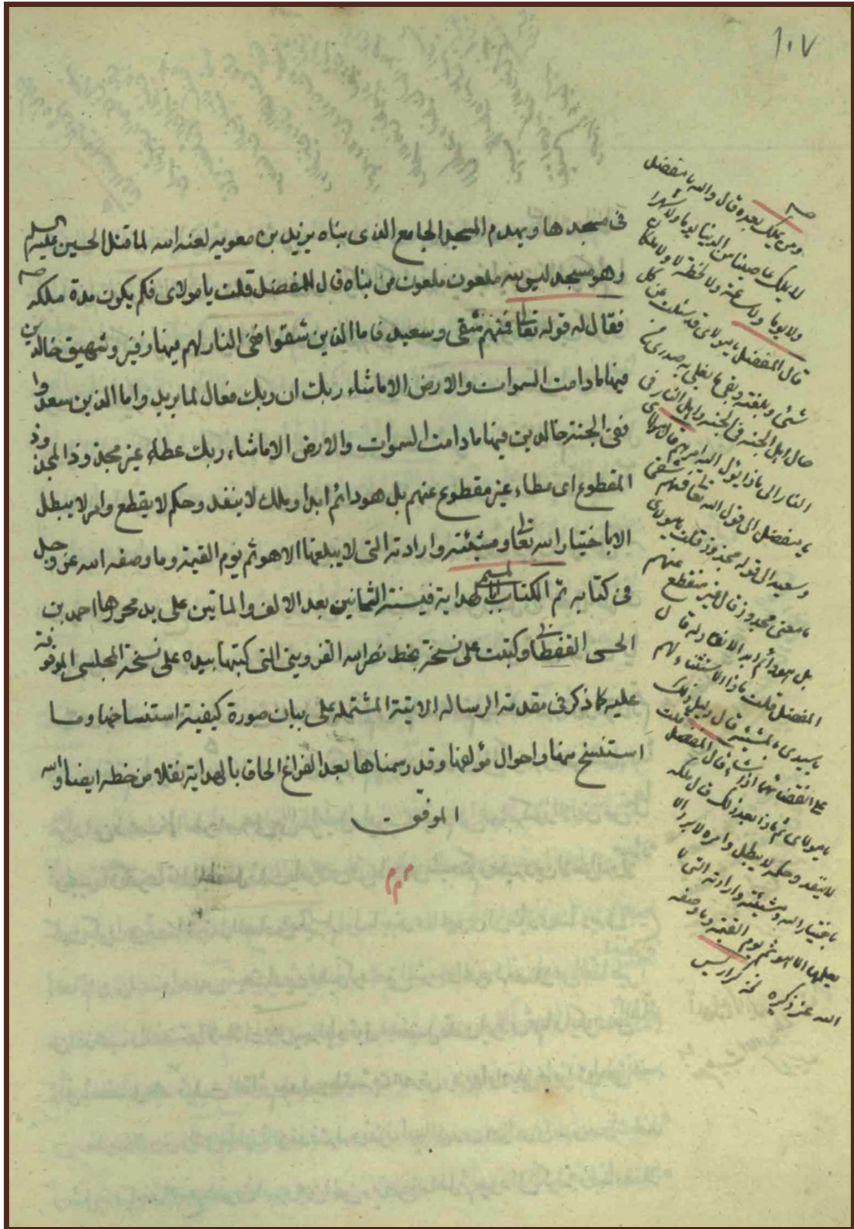 ١٠٧
في مسجدها ويهدم المسجد الجامع الذي بناه يزيد بن معويه لعنه الله لما قتل الحسين عليه السلم
وهو مسجد ليس لله ملعون ملعون من بناه قال المفضل قلت يا مولاى فكم يكون مدة ملكه
فقال له قوله تعا فمنهم شقى وسعيد فاما الذين شقوا ففى النار لهم فيها زفير وشهيق خالدين
فيها مادامت السموات والارض الا ماشاء ربك ان ربك فعال لما يريد واما الذين سعدوا
ففى الجنة خالدين فيها مادامت السموات والارض الا ماشاء ربك عطاء غير مجذوذ والمجذوذ
المقطوع اى عطاء غير مقطوع عنهم بل هو دائم ابدا وملك لا ينفد وحكم لا يقطع وامر لا يبطل
الا باختيار الله تعا ومشيئته وارادته التى لا يبلغها الا هو ثم يوم القيمة وما وصفه الله عز وجل
فى كتابه تم الكتاب المسمى بالهداية فى سنة الثمانين بعد الالف والماتين على يد محررها احمد بن
الحسن وكتبت على نسخة بخط نصر الله القزوينى التى كتبها بيده على نسخة المجلسى الموقوفة
عليه كما ذكر فى مقدمة الرسالة الاتية المشتملة على بيان صورة كيفية استنساخها وما
استنسخ منها واحوال مؤلفها وقد رسمناها بعد الفراغ الحاق بالهداية نقلا من خطه ايضا والله
الموفق
ومن يملك بعده قال والله يا مفضل
لا يملك عاصينا من الدنيا يوما ولا شهرا
ولا يوما ولا ساعة ولا لحظة لا ولا ملكا
قال المفضل يا مولاى قد سئلت عن كل
شئى وبلغته وبقى ما يغلى به صدرى
حال اهل الجنة فى الجنة واهل النار فى
النار الى ماذا يؤل اليه امرهم قال
يا مفضل الى قول الله تعا فمنهم شقى
وسعيد الى قوله مجذوذ قلت يا مولاى
ما معنى مجذوذ قال غير منقطع عنهم
بل هو دائم ابد لا نفاد له قال
المفضل قلت ماذا الاستثناء لهم
يا سيدى المشية قال دليل ذلك
انقضائهما اذا شاء قال المفضل قلت
يا مولاى ثم ماذا بعد ذلك قال ملك
لا ينفد وحكم لا يبطل وامر لا يرد الا
باختيار الله ومشيئته وارادته التى لا
يعلمها الا هو ثم يوم القيمة وما وصفه
الله عز ذكره